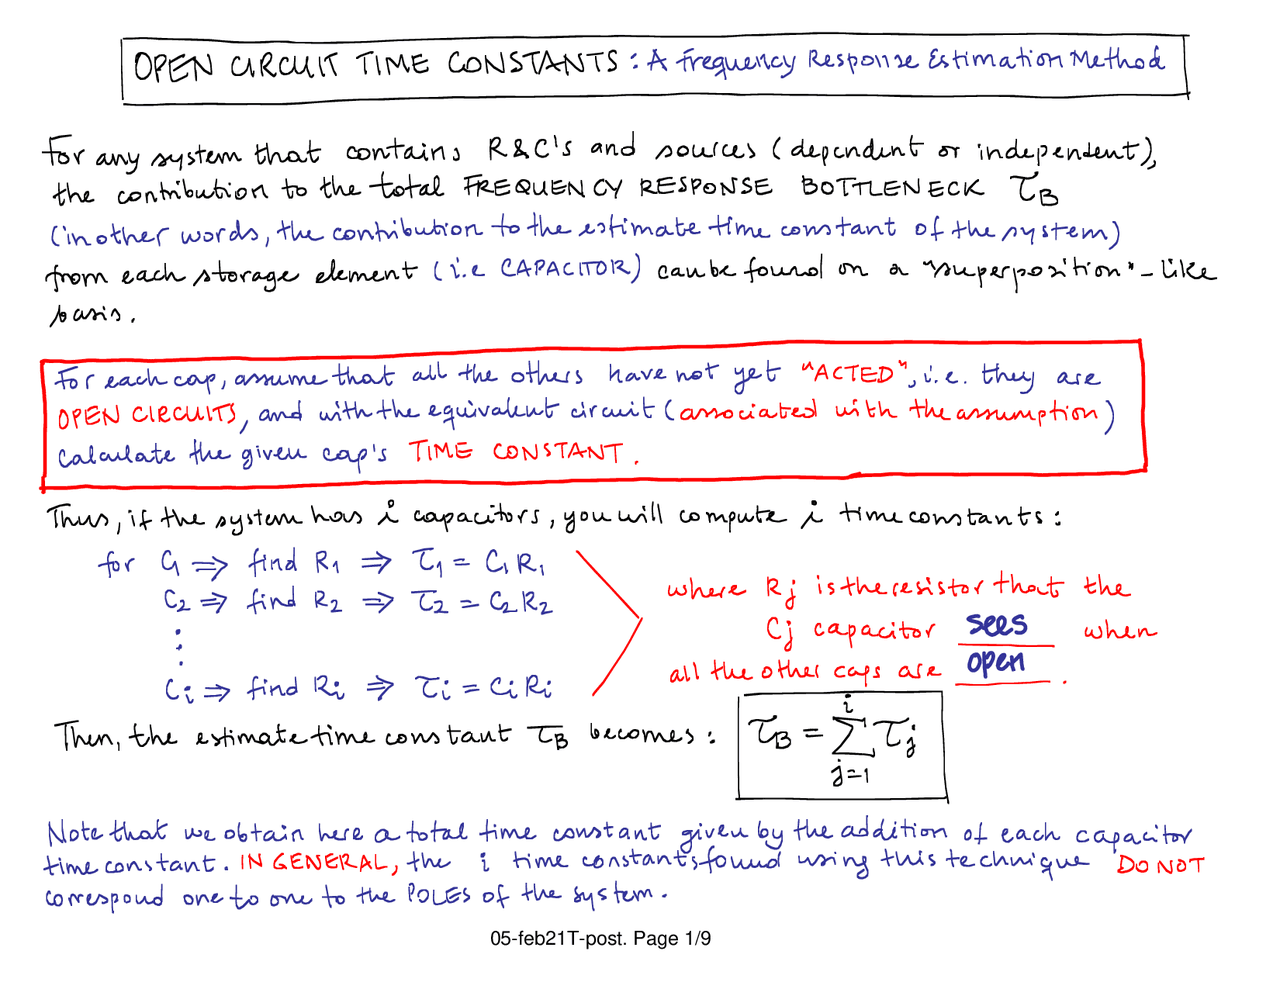 OPEN CIRCUIT TIME CONSTANTS : A Frequency Response Estimation Method
For any system that contains R&C's and sources (dependent or independent),
the contribution to the total FREQUENCY RESPONSE BOTTLENECK τB
(in other words, the contribution to the estimate time constant of the system)
from each storage element (i.e CAPACITOR) can be found on a "superposition"-like
basis.
For each cap, assume that all the others have not yet "ACTED", i.e. they are
OPEN CIRCUITS, and with the equivalent circuit (associated with the assumption)
calculate the given cap's TIME CONSTANT.
Thus, if the system has i capacitors, you will compute i time constants:
for C1 ⇒ find R1 ⇒ τ1 = C1R1
C2 ⇒ find R2 ⇒ τ2 = C2R2
⋮
Ci ⇒ find Ri ⇒ τi = CiRi
where Rj is the resistor that the
Cj capacitor sees when
all the other caps are open.
Then, the estimate time constant τB becomes: τB = ∑_{j=1}^{i} τj
Note that we obtain here a total time constant given by the addition of each capacitor
time constant. IN GENERAL, the i time constants found using this technique DO NOT
correspond one to one to the POLES of the system.
05-feb21T-post. Page 1/9